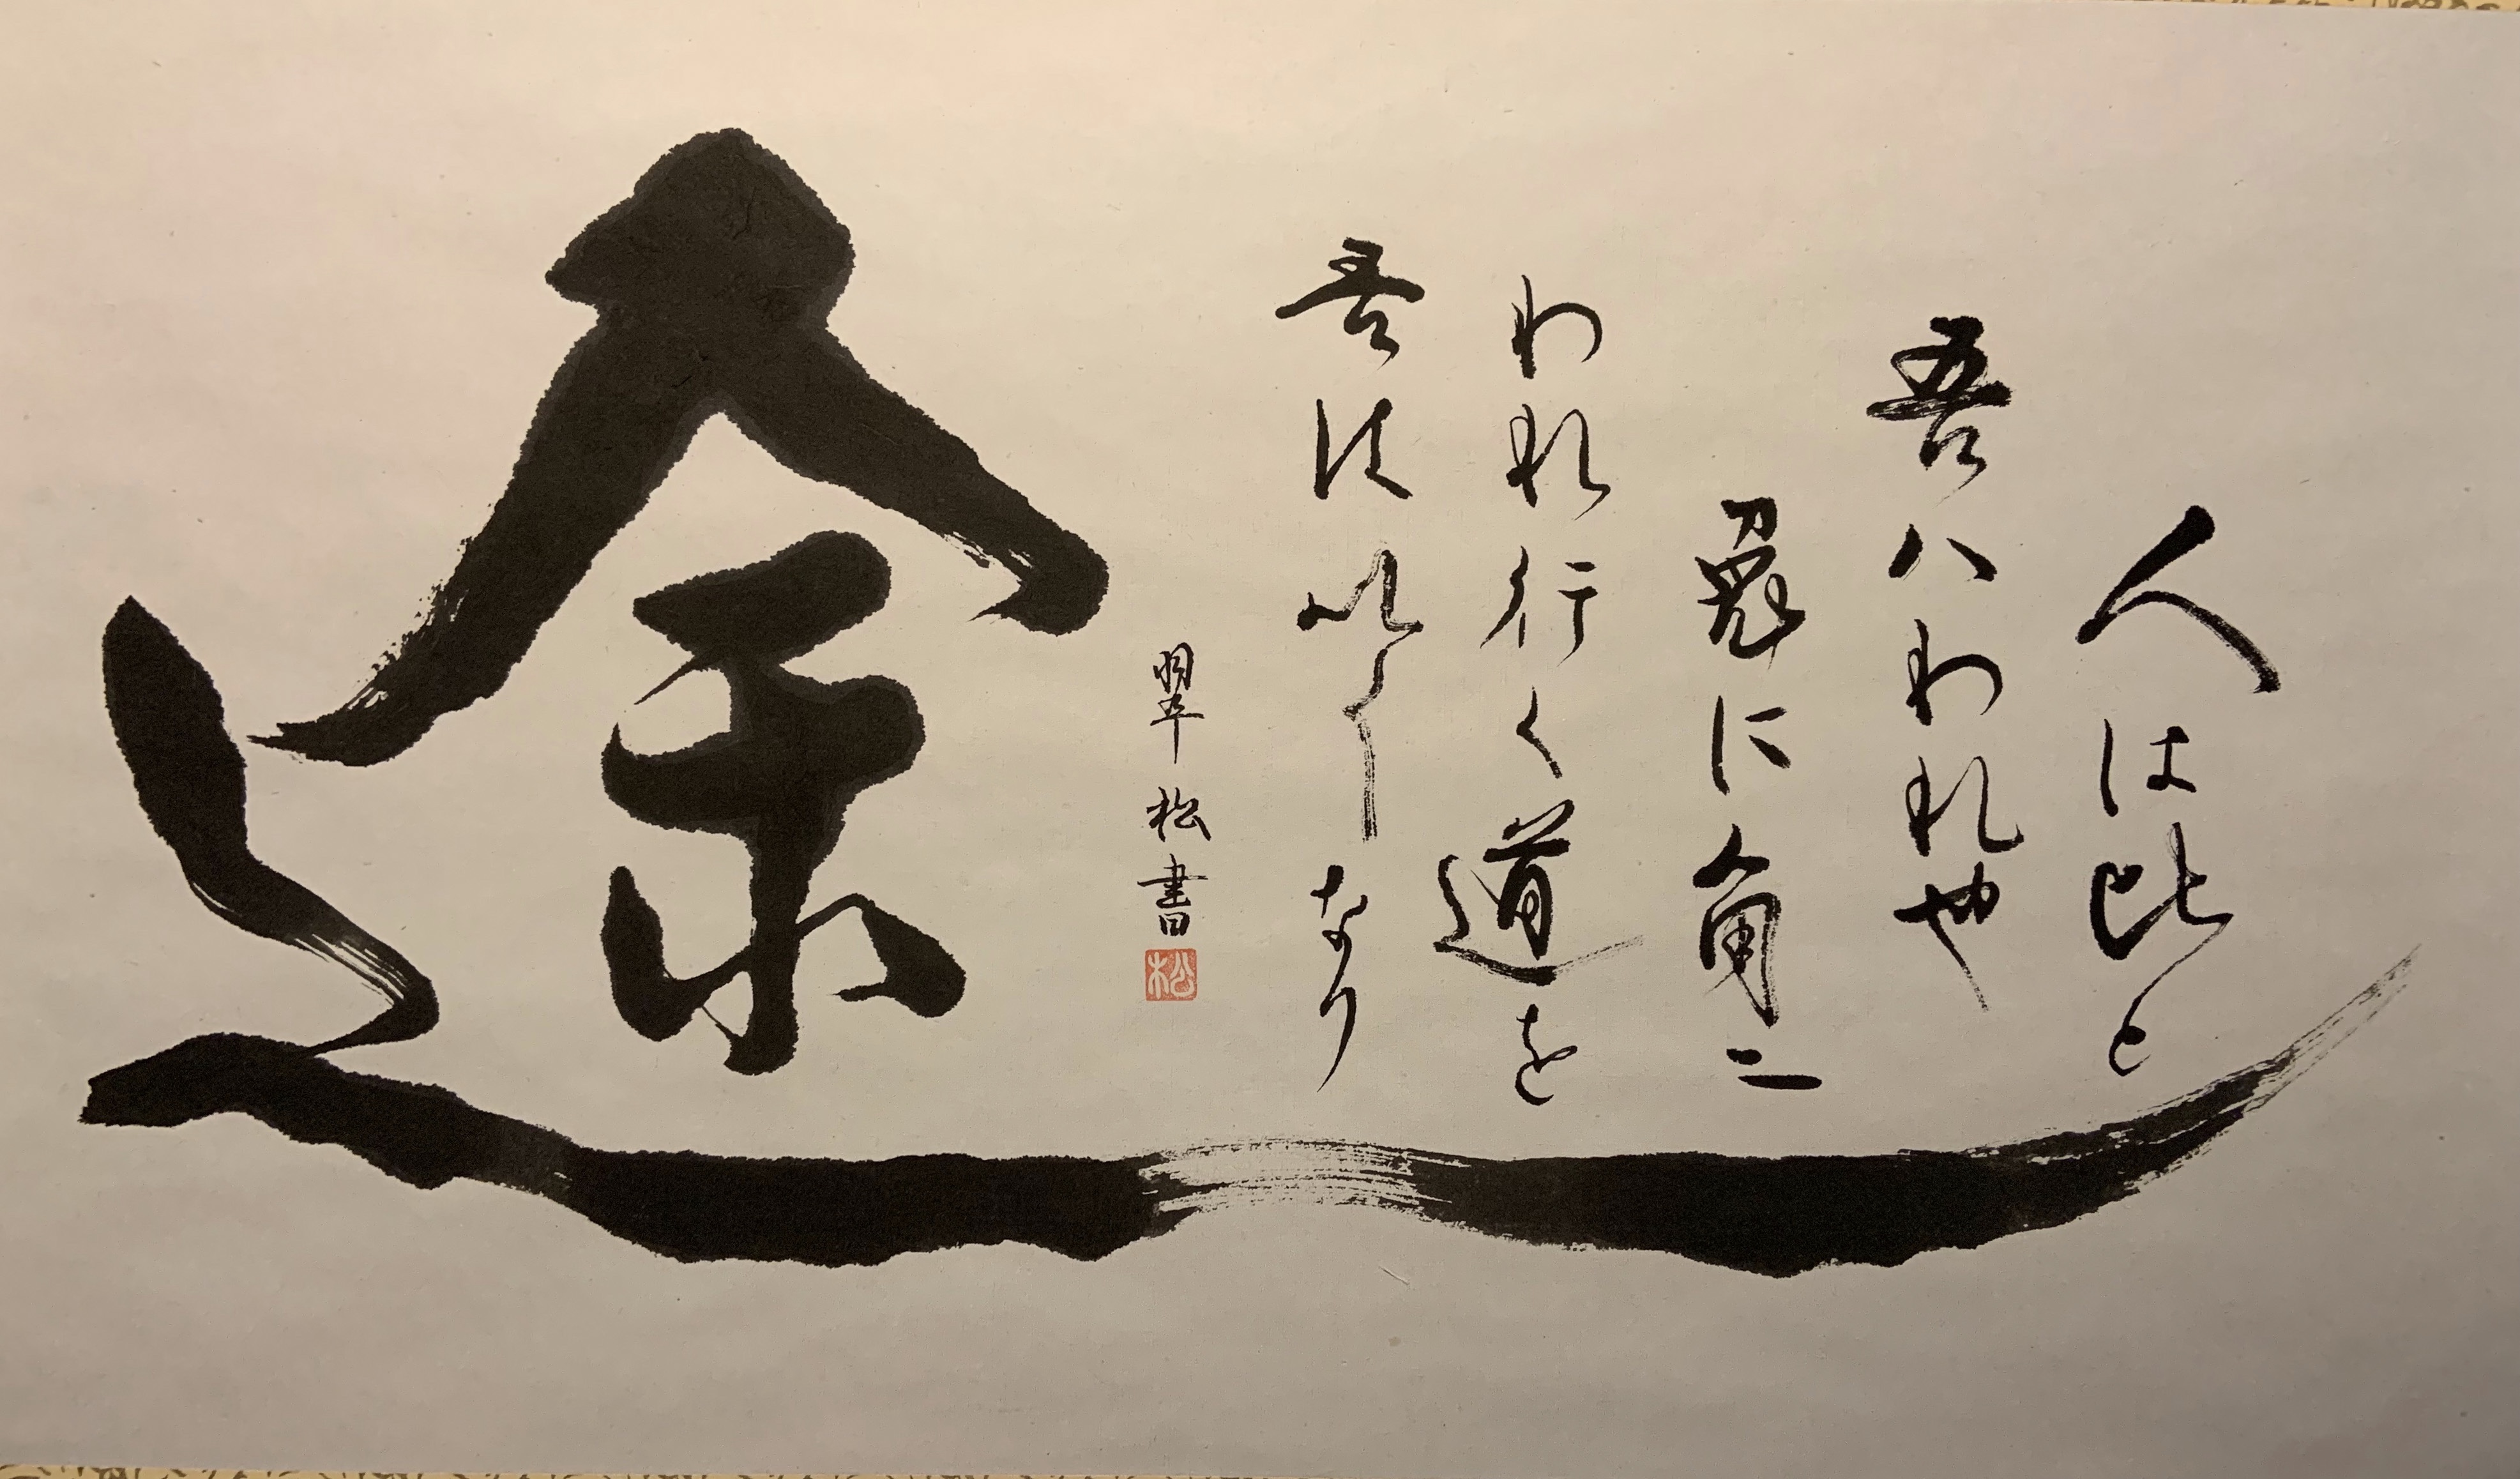 人は比と
吾ハわれ也
兎に角二
われ行く道を
吾は以くなり
翠松書
松
途